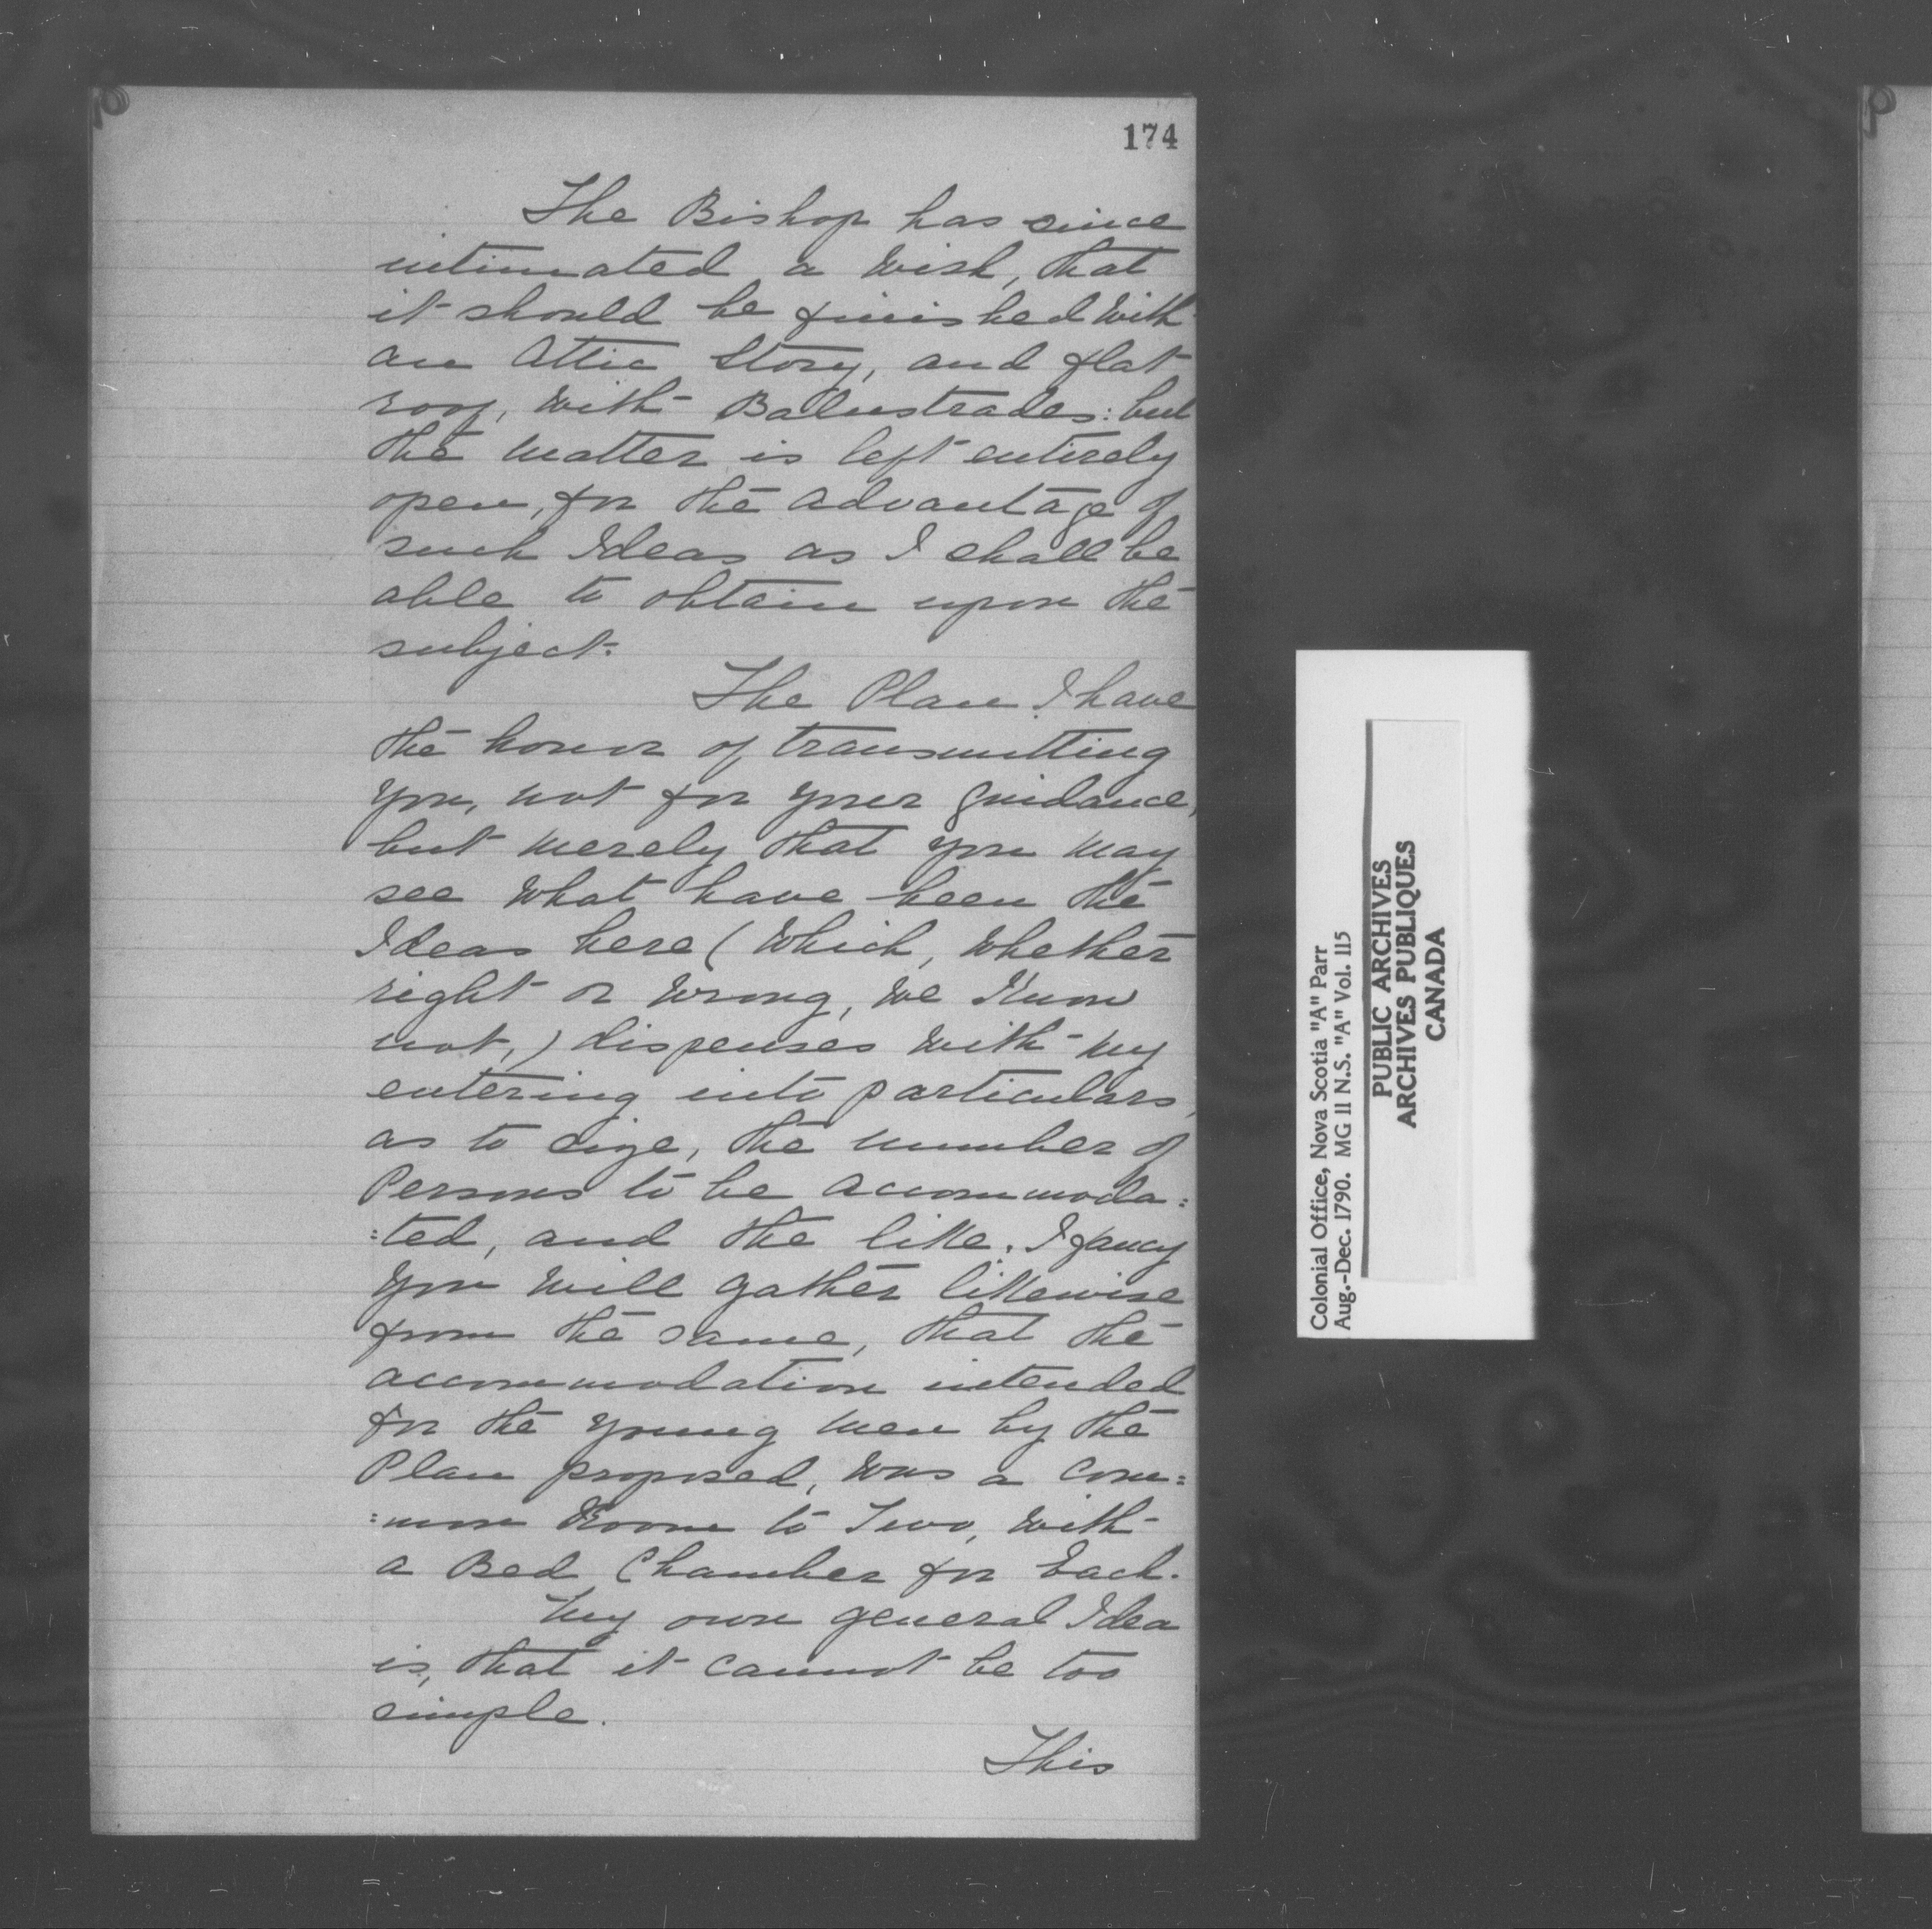 174
The Bishop has since
intimated a Wish, that
it should be finished With
an Attic Story, and flat
roof, With Balustrades: but
the Matter is left entirely
open, for the advantage of
such Ideas as I shall be
able to obtain upon the
subject.
The Plan I have
the honor of transmitting
you, not for your Guidance,
but Merely that you May
see What have been the
Ideas here (Which, Whether
right or Wrong, We Know
not,) dispenses With My
entering into particulars,
as to size, the number of
Persons to be accommoda:
:ted, and the like. I fancy
you Will gather likewise
from the same, that the
accommodation intended
for the young Men by the
Plan proposed, Was a Com:
:mon Room to Two, With
a Bed Chamber for Each.
My own general Idea
is, that it Cannot be too
simple.
This
Colonial Office, Nova Scotia "A" Parr
Aug.-Dec. 1790. MG 11 N.S. "A" Vol. 115
PUBLIC ARCHIVES
ARCHIVES PUBLIQUES
CANADA